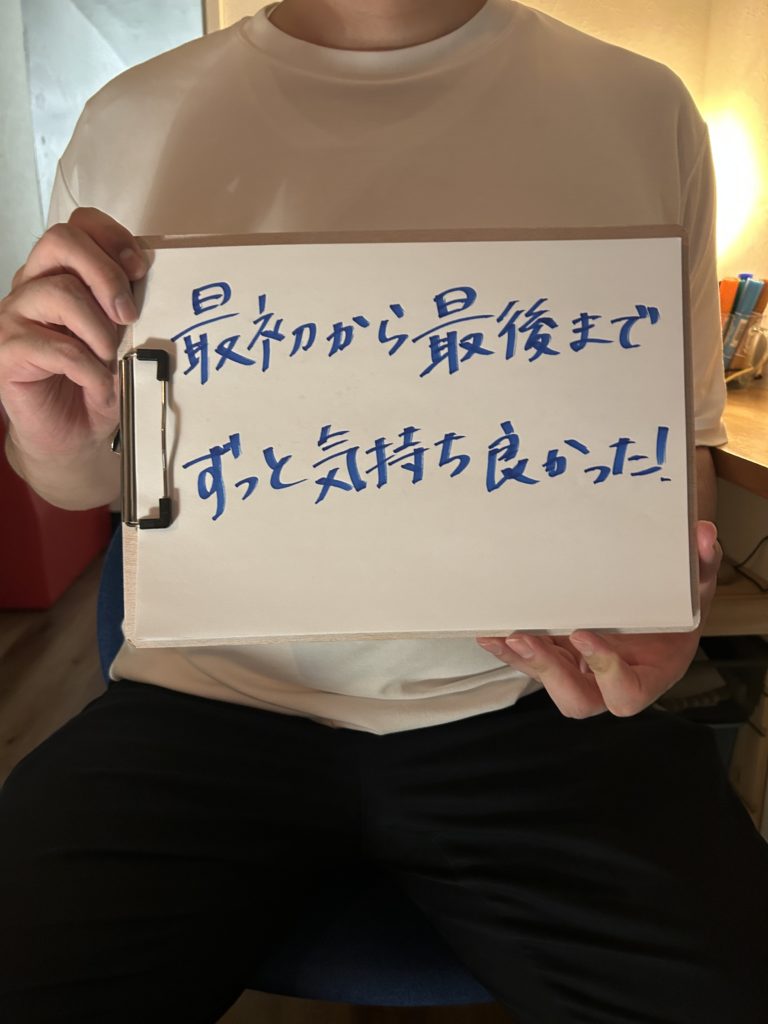 最初から最後まで
ずっと気持ち良かった!